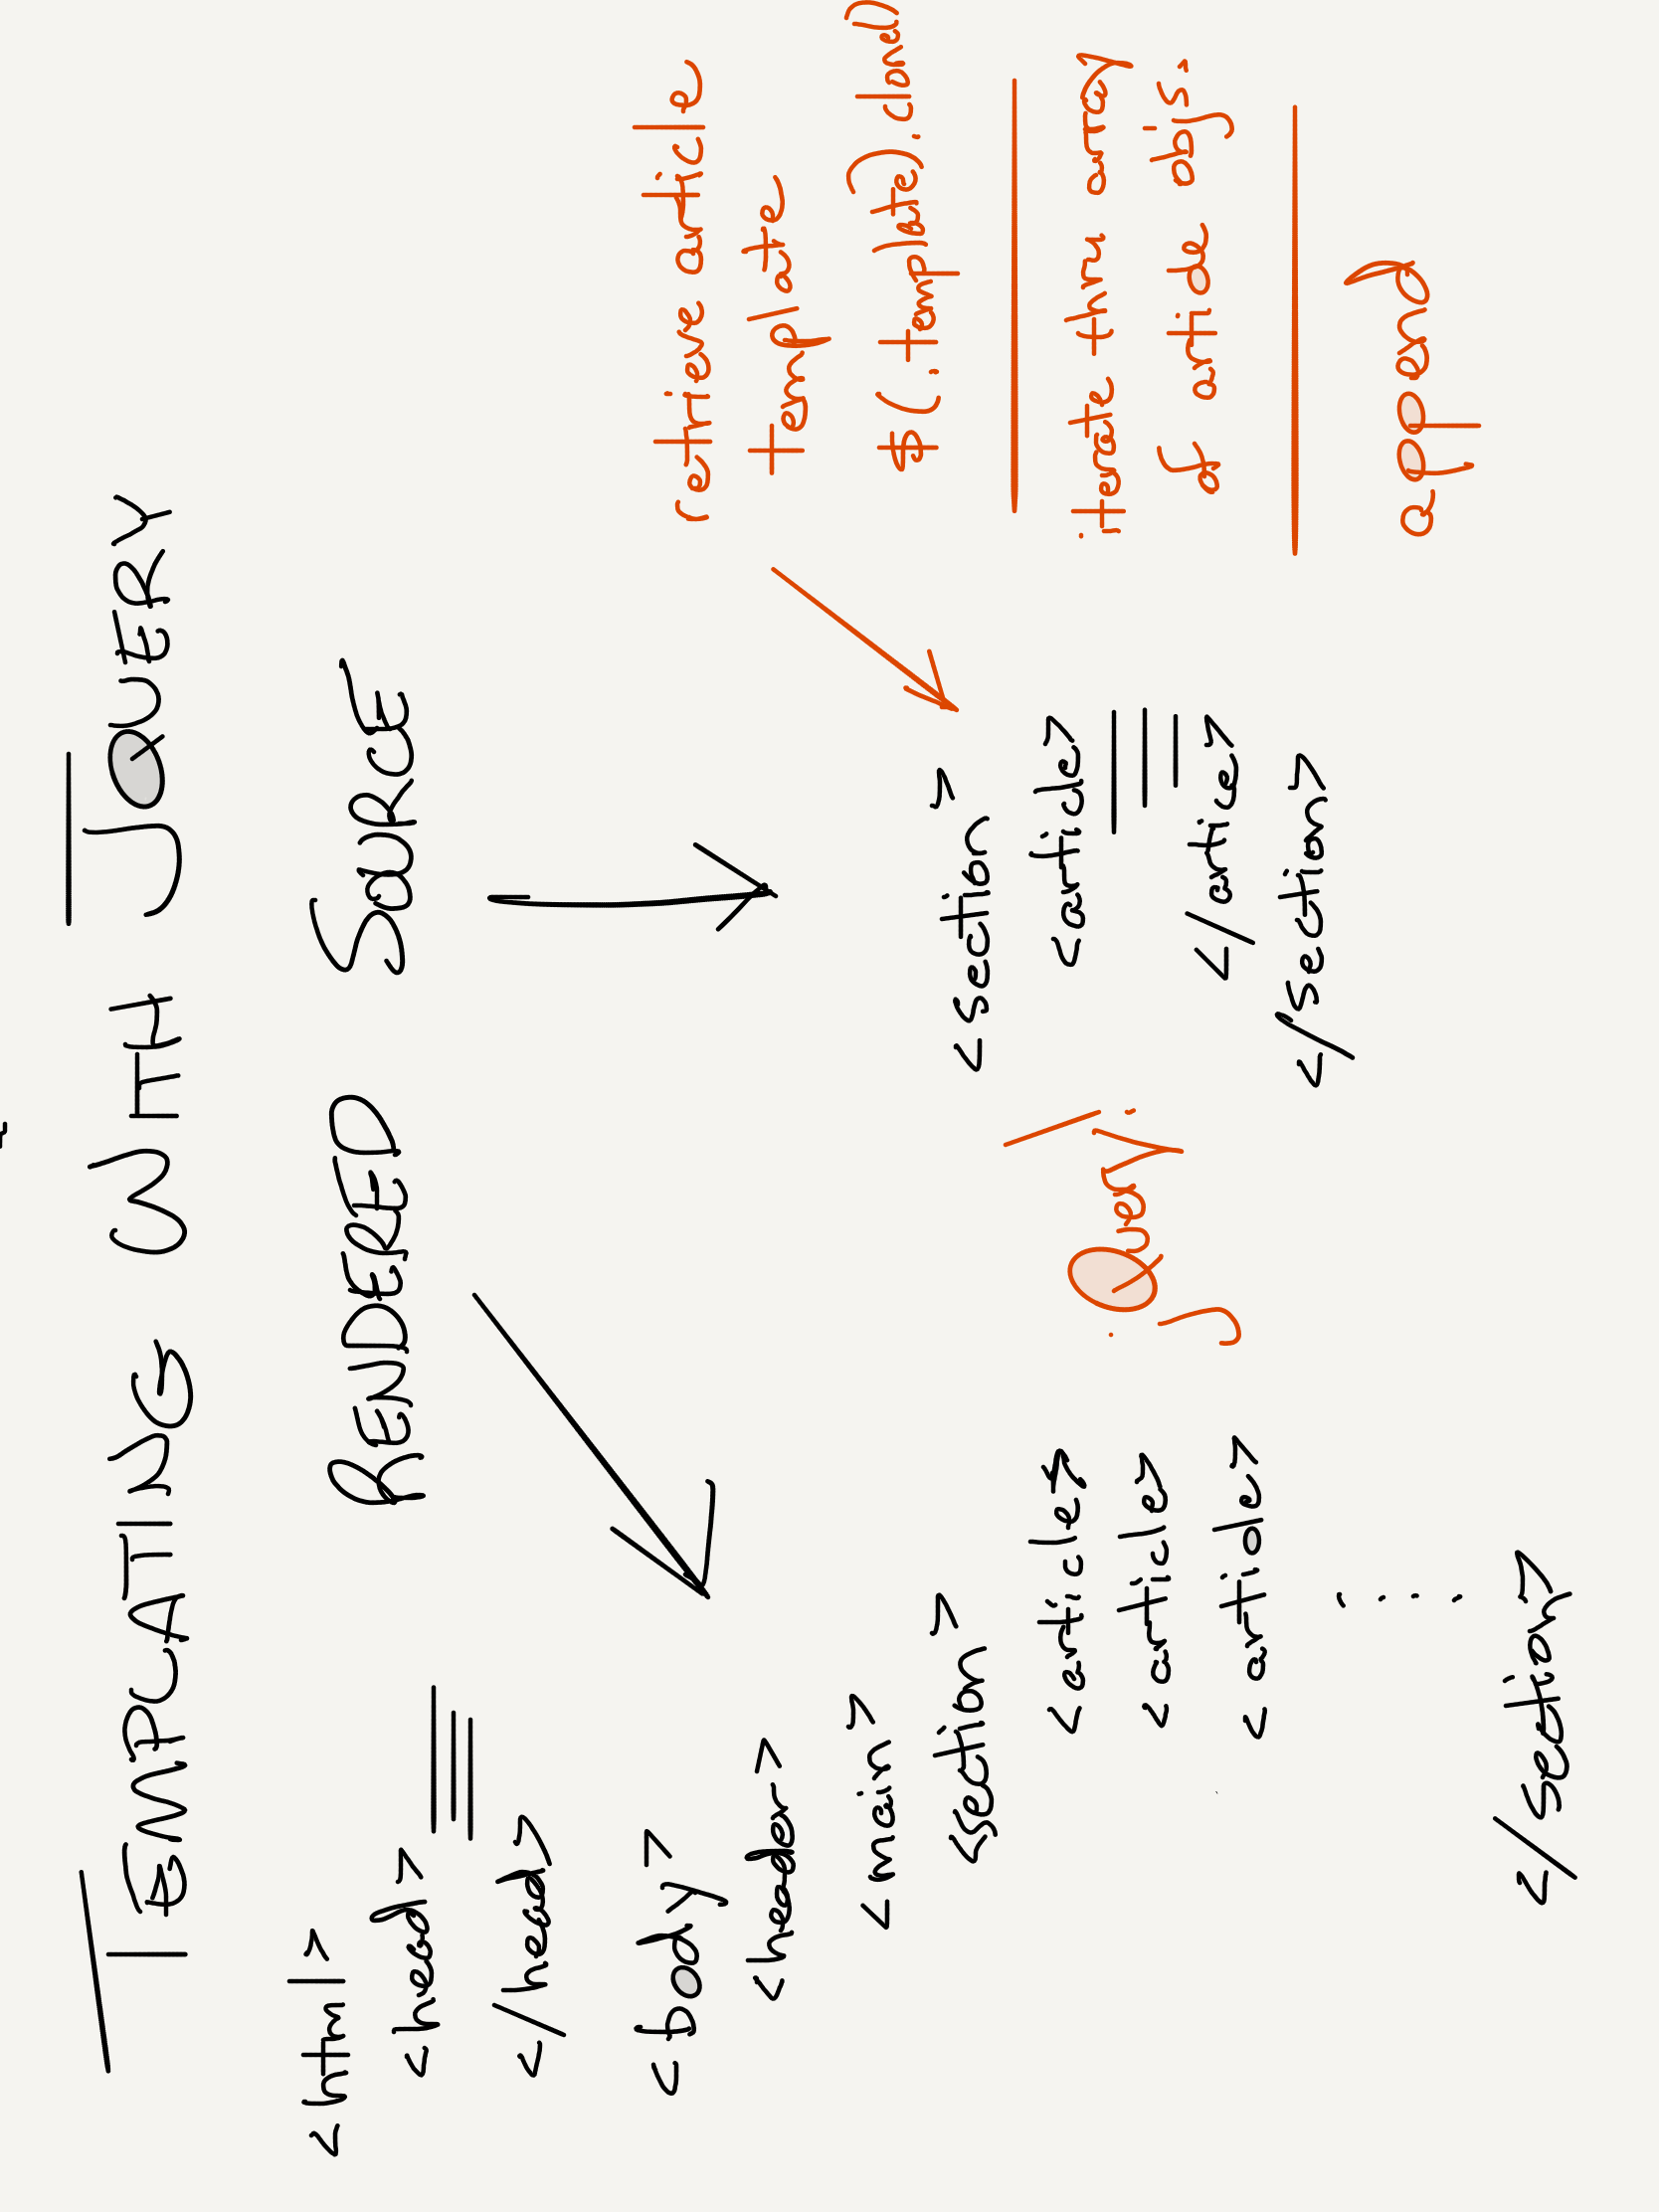 TEMPLATING WITH JQUERY
RENDERED
SOURCE
<html>
<head>
</head>
<body>
<header>
<main>
<section>
<article>
<article>
<article>
</section>
jQuery!
<section>
<article>
</article>
</section>
retrieve article
template
$(.template).clone()
iterate thru array
of article objs.
append